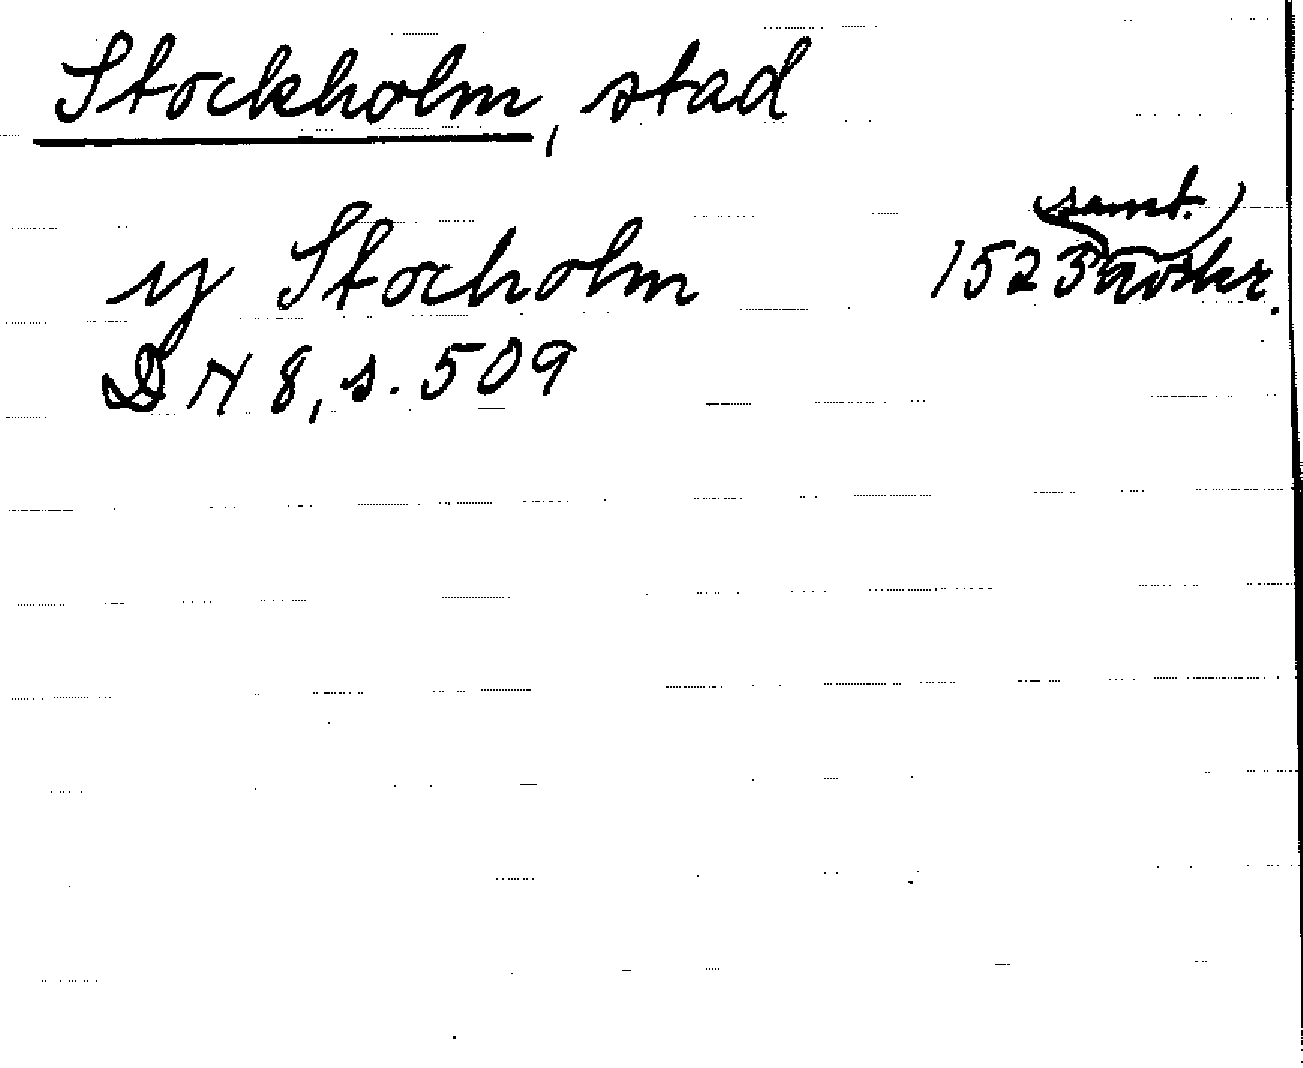 Stockholm, stad
samt.
y Stocholm 1523 avskr.
DN 8, s. 509